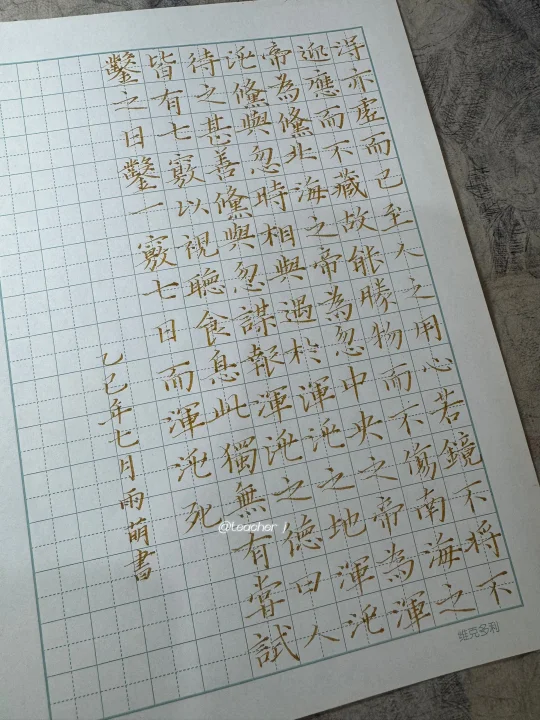 得亦虛而已至人之用心若鏡不将不
迎應而不藏故能勝物而不傷南海之
帝為儵北海之帝為忽中央之帝為渾
沌儵與忽時相與遇於渾沌之地渾沌
待之甚善儵與忽謀報渾沌之德曰人
皆有七竅以視聽食息此獨無有嘗試
鑿之日鑿一竅七日而渾沌死
乙巳年七月雨萌書
维克多利
@teacher